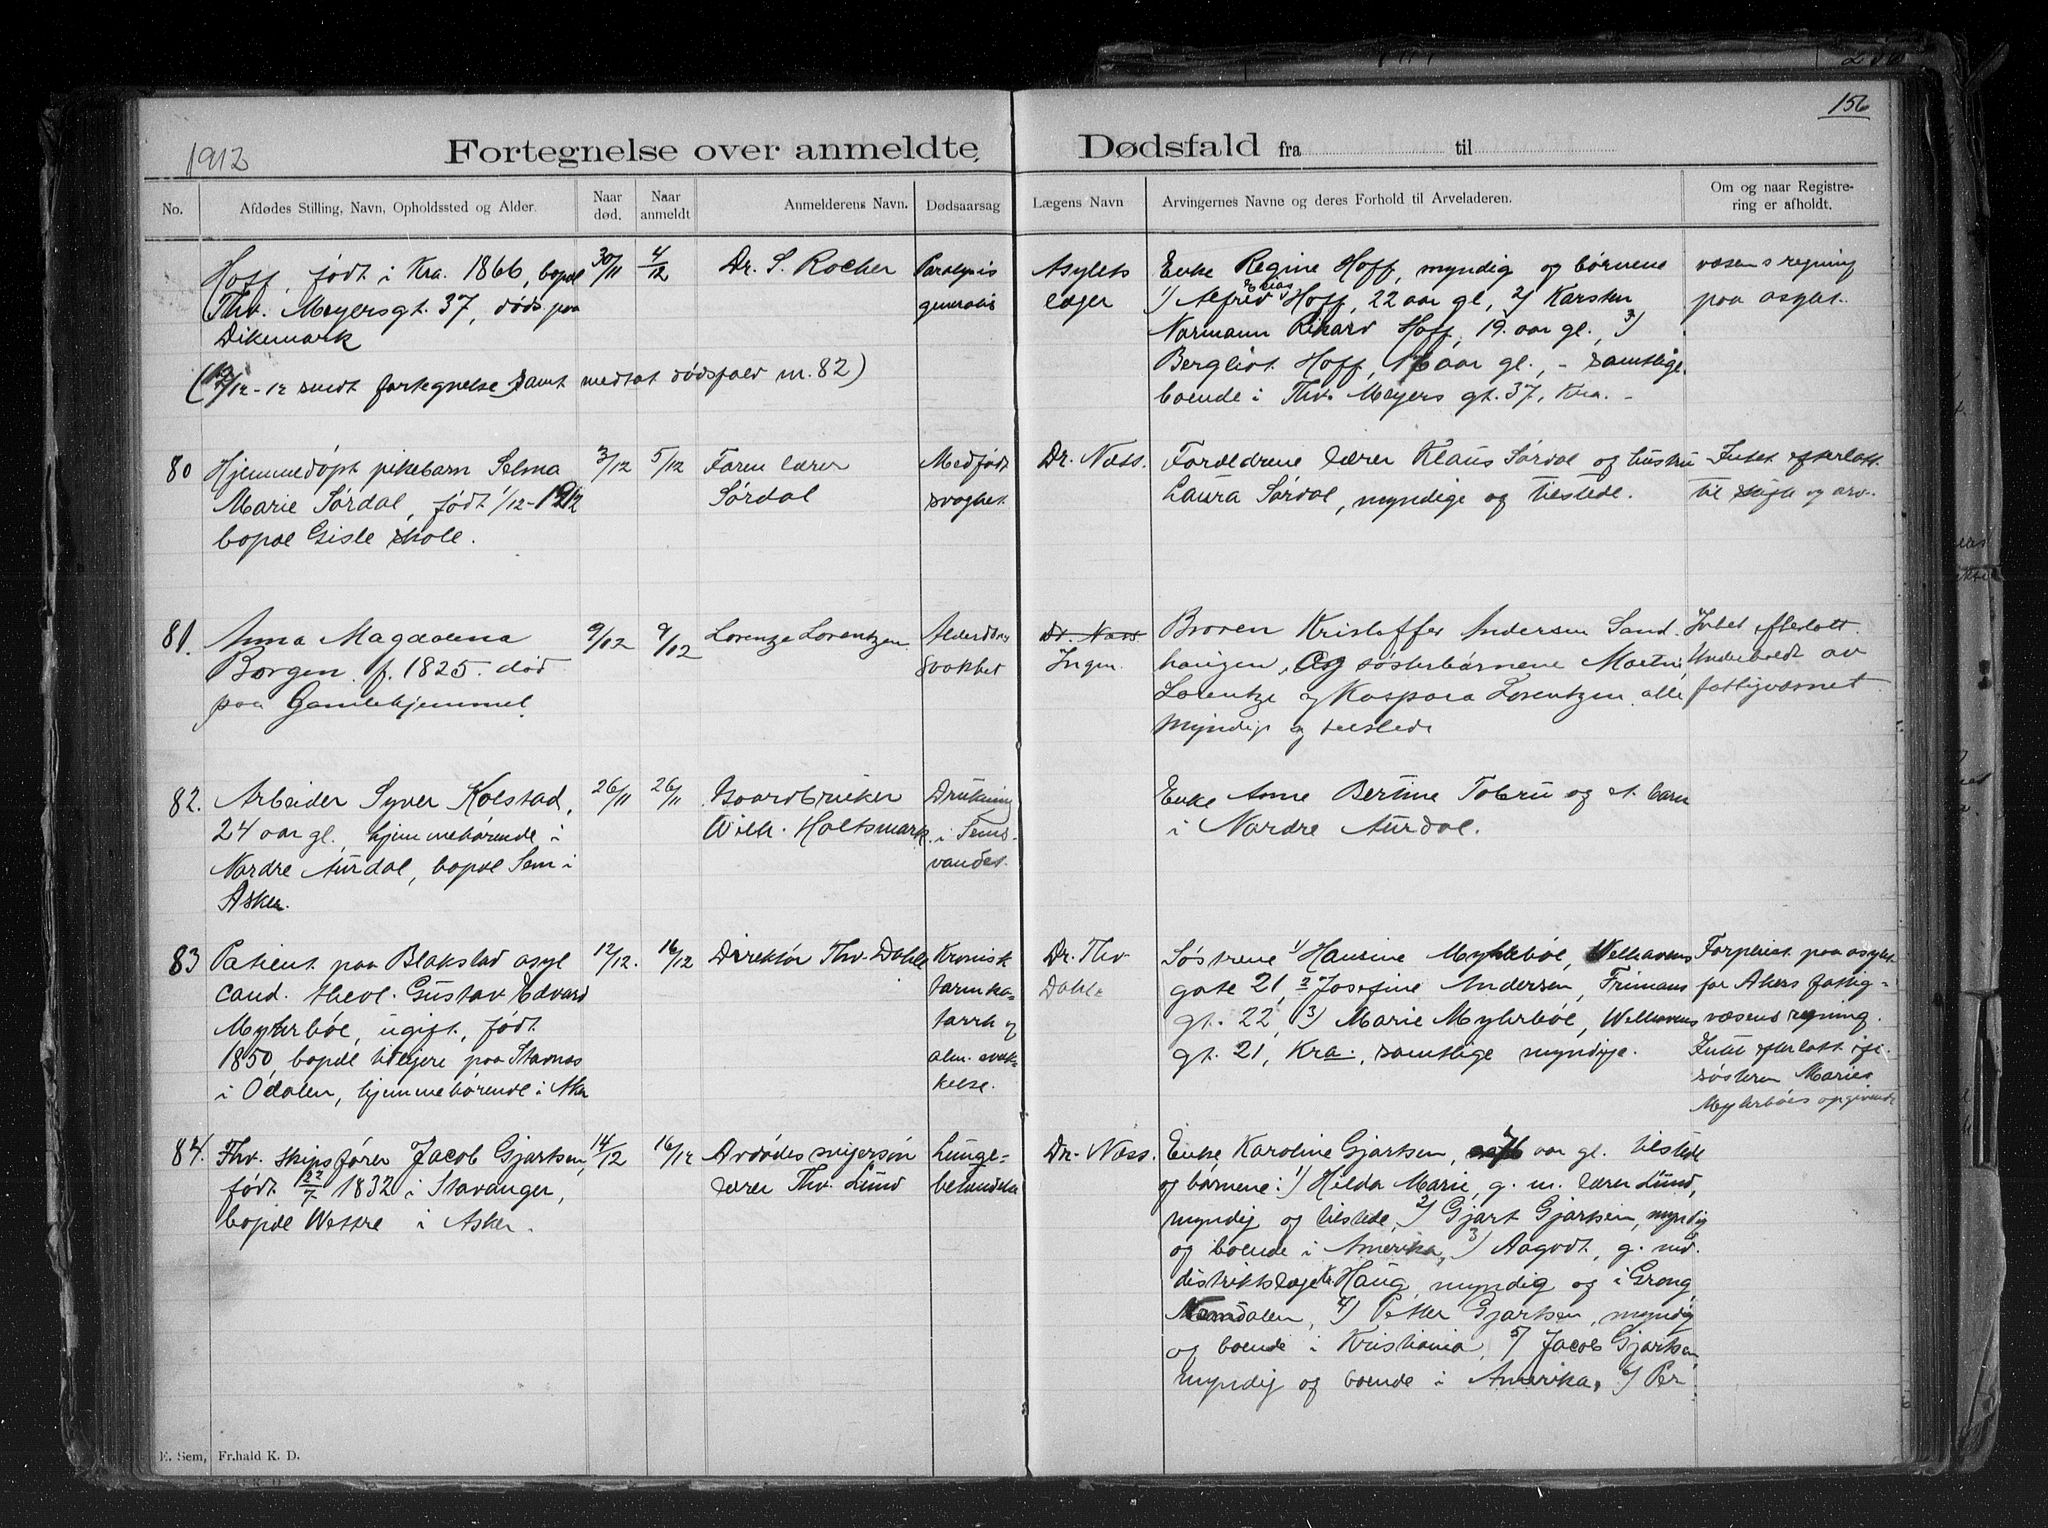 156
1912
Fortegnelse over anmeldte Dødsfald fra til
No. Afdødes Stilling, Navn, Opholdssted og Alder. Naar død. Naar anmeldt Anmelderens Navn. Dødsaarsag Lægens Navn Arvingernes Navne og deres Forhold til Arveladeren. Om og naar Registrering er afholdt.
Hoff, født i Kra. 1866, bopæl
Thv. Meyersgt. 37, døds paa
Dikemark
(12/12-12 sendt fortegnelse samt medtat dødsfald nr. 82)
30/11
4/12
Dr. S. Rocher
Paralysis
generalis
Asylets
læger
Enke Regine Hoff, myndig og børnene
1) Alfred Elias Hoff, 22 aar gl, 2) Karsten
Normann Rikard Hoff, 19 aar gl, 3)
Bergliot Hoff, aar gl., - samtlige
boende i Thv. Meyers gt. 37, Kra. -
væsens regning
paa asylet.
80
Hjemmedøpt pikebarn Selma
Marie Sørdal, født 1/12-1912
bopæl Gisle skole.
3/12
5/12
Faren lærer
Sørdal
Medfødt
svaghet
Dr. Næss.
Forældrene lærer Klaus Sørdal og hustru
Laura Sørdal, myndige og tilstede.
Intet efterlatt
til skifte og arv.
81.
Anna Magdalena
Borgen f. 1825 død
paa Gamlehjemmet
9/12
9/12
Lorentze Lorentzen
Alderdoms
svakhet
Dr. Næss
Ingen.
Broren Kristoffer Andersen Sand
haugen, og søsterbørnene Martin,
Lorentze og Kaspara Lorentzen alle
myndige og tilstede
Intet efterlatt.
Underholdt av
fattigvæsnet
82.
Arbeider Syver Kolstad,
24 aar gl., hjemmehørende i
Nordre Aurdal, bopæl Sem i
Asker.
26/11
26/11
Gaardbruker
Wilh. Holtsmark
Drukning
i Sems-
vandet.
Enke Anne Bertine Tobru og et barn
i Nordre Aurdal.
83
Patient paa Blakstad asyl
cand. theol. Gustav Edvard
Myhrbøe, ugift, født
1850, bopæl tidligere paa Stavnæs
i Odalen, hjemmehørende i Aker
12/12.
16/12
Direktør Thv. Dahle
Kronisk
tarmka-
tarrh og
alm. svæk-
kelse.
Dr. Thv
Dahle
Søstrene 1) Hansine Myhrbøe, Welhavens
gate 21, 2 Josefine Andersen, Frimans
gt. 22, 3) Marie Myhrbøe, Welhavens
gt. 21, Kra., samtlige myndige.
Forpleiet paa asylet
for Akers fattig-
væsens regning.
Intet efterlatt ifl.
søsteren Maries
Myhrbøes opgivende
84.
Fhv. skipsfører Jacob Gjartsen,
født 22/7 1832 i Stavanger,
bopæl Wettre i Asker.
14/12
16/12
Avdødes svigersøn
lærer Thv. Lund
Lunge-
betændelse
Dr. Næss.
Enke Karoline Gjartsen, 76 aar gl. tilstede
og børnene: 1) Hilda Marie, g. m. lærer Lund,
myndig og tilstede, 2) Gjart Gjartsen, myndig
og boende i Amerika, 3) Aagodt, g. med
distriktslæge Haug, myndig og i Grong
Namdalen, 4) Petter Gjartsen, myndig
og boende i Kristiania, 5) Jacob Gjartsen,
myndig og boende i Amerika, 6) Per
E. Sem, Fr.hald K. D.